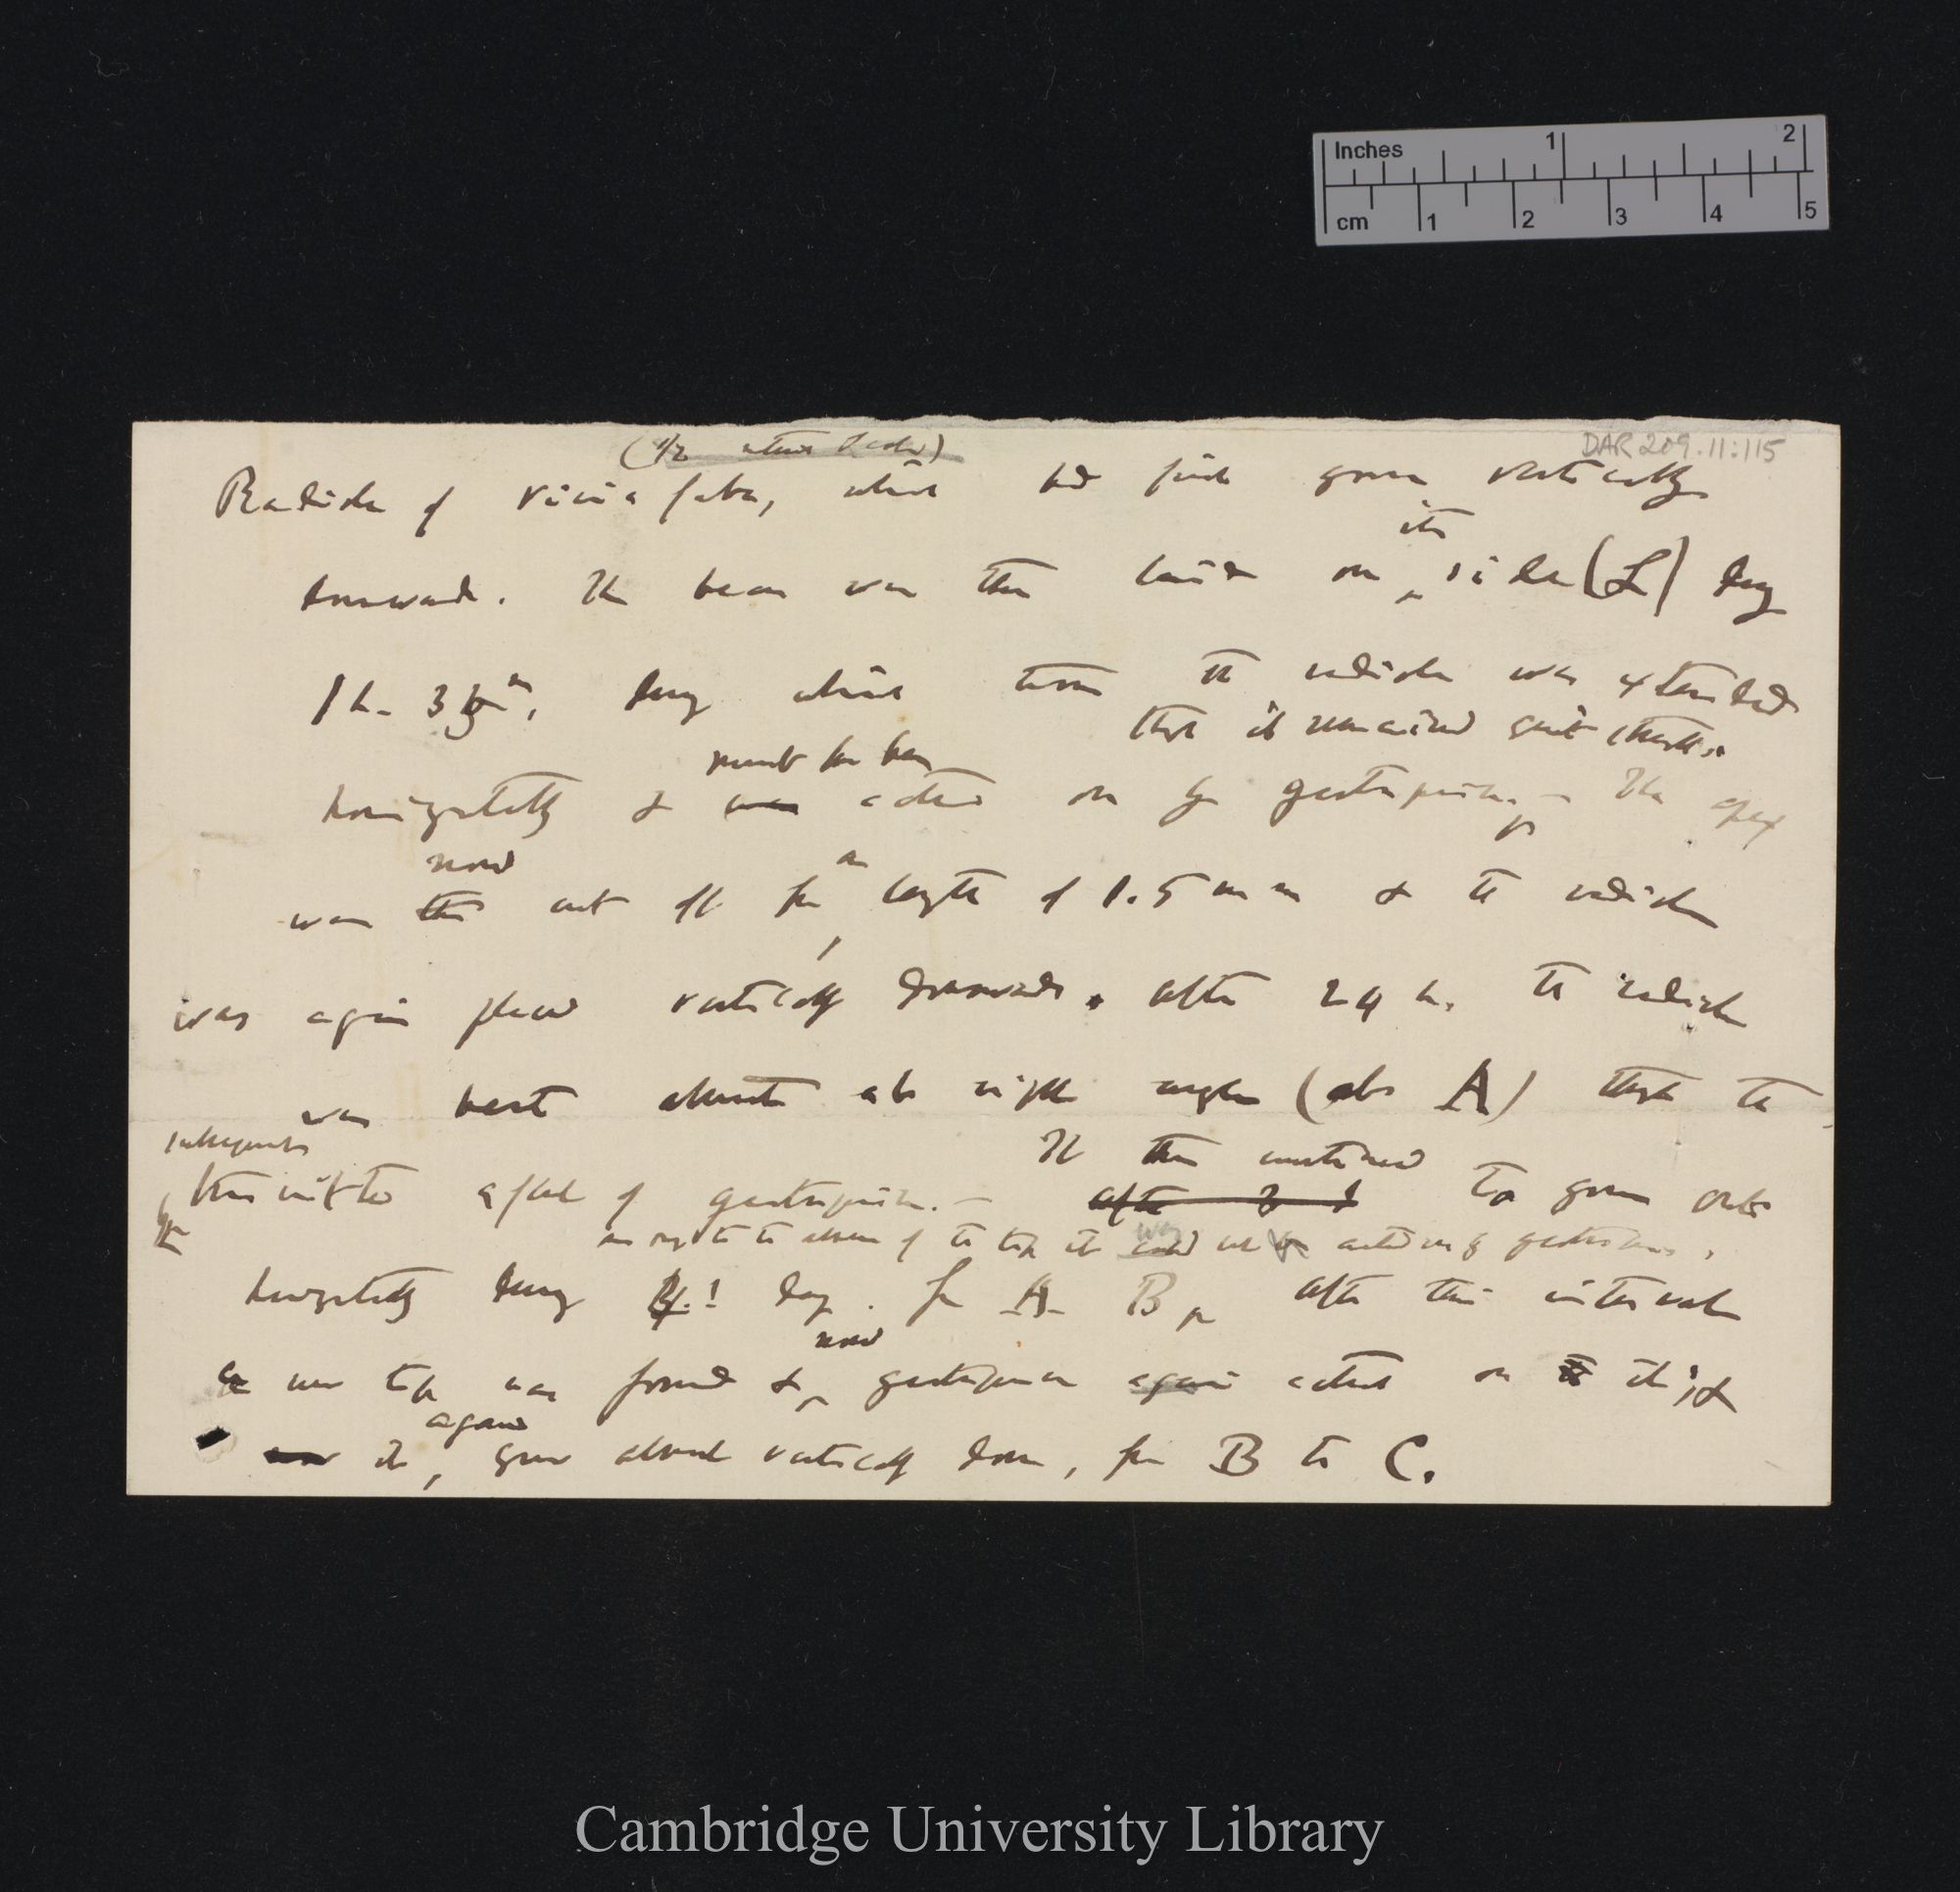 Inches 1 2
cm 1 2 3 4 5
DAR 209.11:115
(1/2
Radicle of Vicia faba, which had first grown vertically
its
downwards. The bean was then laid on side (L) during
1 h. 3 m, during which time the radicle was extended
that it remained quite
must have been
horizontally & was acted on by geotropism. — The apex
now
a
was then cut off for length of 1.5 mm & the radicle
was again placed vertically downwards. After 24 h. the radicle
was bent almost at right angles (at A) through the
subsequently
transmitted effect of geotropism. — after 2 to grow out
It then continued
owing to the absence of the tip it could not acted on by geotropism,
horizontally during 4! days. from A B after this interval
now
a new tip was formed & geotropism again acted on the it, &
again
it, grew almost vertically down, from B to C.
Cambridge University Library